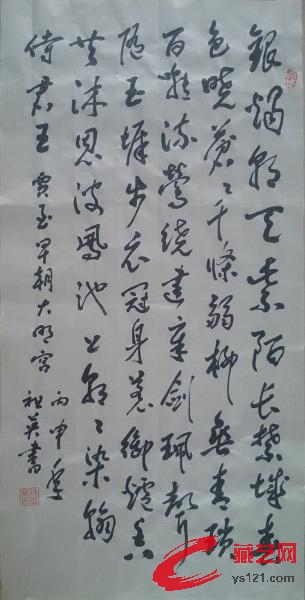 銀燭朝天紫陌长禁城春
色曉蒼々千條弱柳垂青琐
百啭流鶯绕建章剑珮聲
随玉墀步衣冠身惹御爐香
共沐恩波鳳池上朝々染翰
侍君王 贾至早朝大明宫
丙申年
祖英書
藏艺网
ys121.com